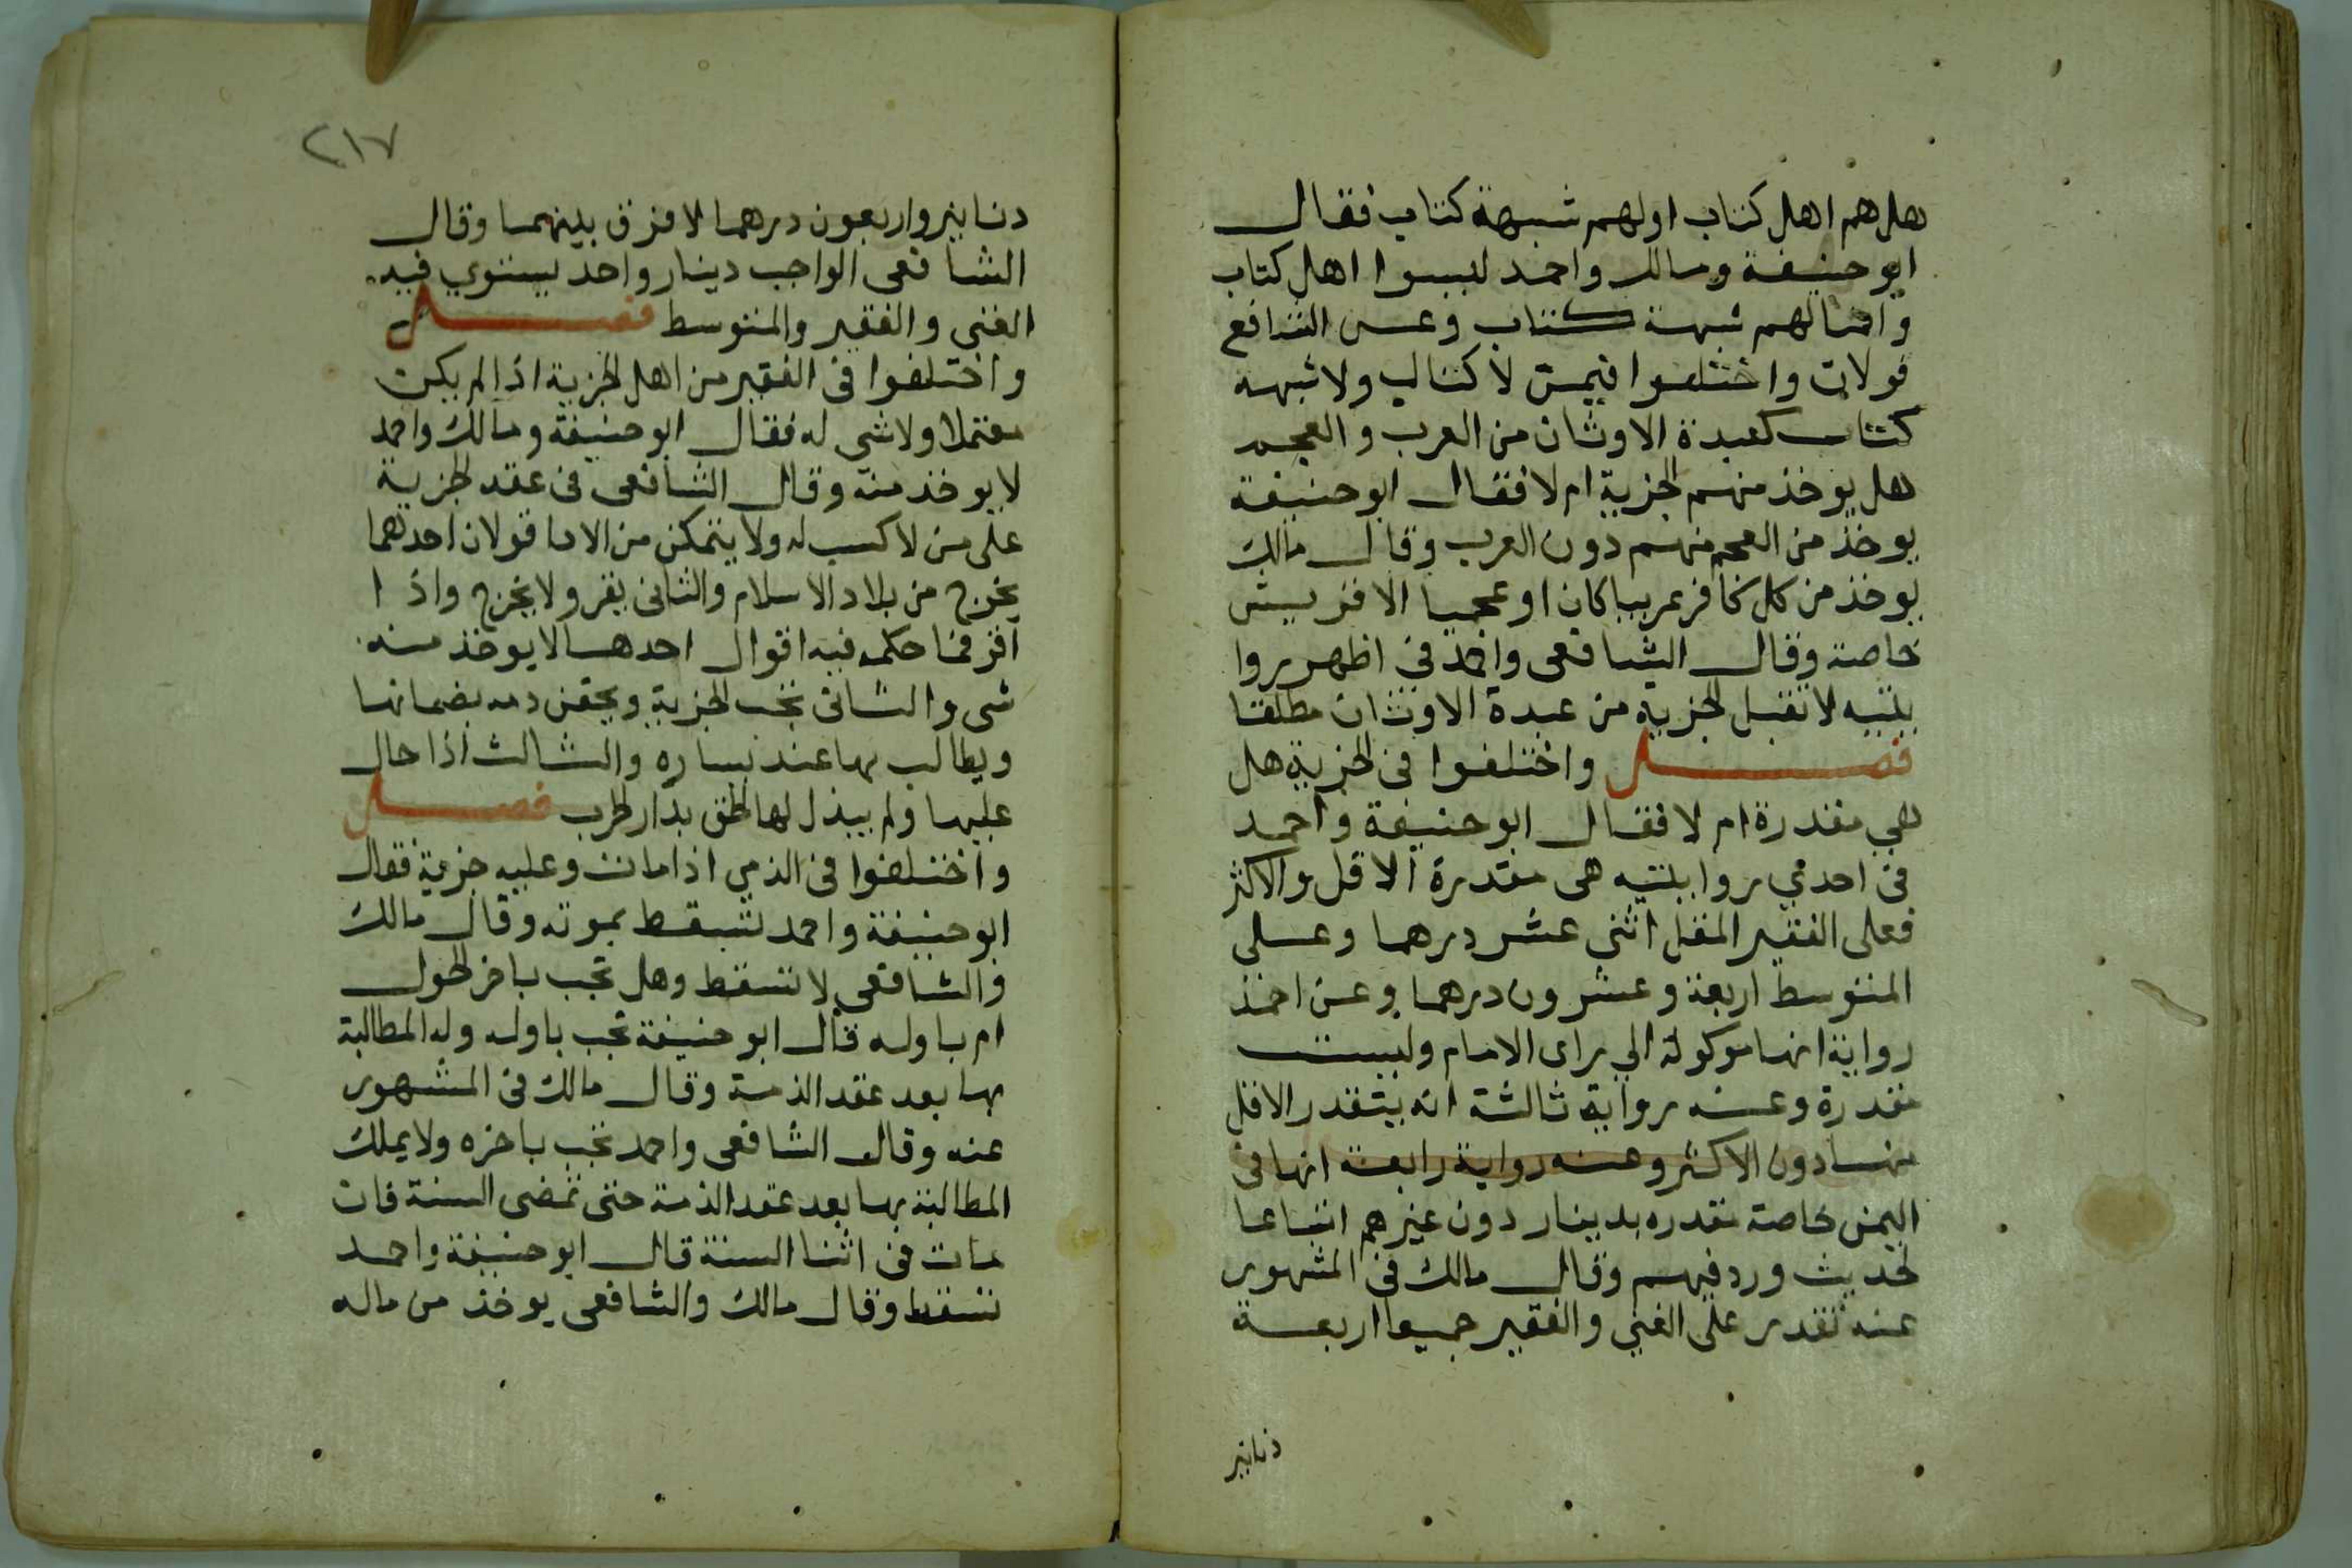 هل هم اهل كتاب اولهم شبهة كتاب فقال
ابو حنيفة ومالك واحمد ليسوا اهل كتاب
وانما لهم شبهة كتاب وعن الشافعي
قولان واختلفوا فيمن لا كتاب ولا شبهه
كتاب كعبدة الاوثان من العرب والعجم
هل يوخذ منهم الجزية ام لا فقال ابو حنيفة
يوخذ من العجم منهم دون العرب وقال مالك
يوخذ من كل كافر عربيا كان او عجميا الا قريش
خاصة وقال الشافعي واحمد في اظهر روا
يتيه لا تقبل الجزية من عبدة الاوثان مطلقا
فصل واختلفوا في الجزية هل
هي مقدرة ام لا فقال ابو حنيفة واحمد
في احدي روايتيه هي مقدرة الاقل والاكثر
فعلى الفقير المقل اثني عشر درهما وعلى
المتوسط اربعة وعشرون درهما وعن احمد
رواية انها موكولة الي راى الامام وليست
مقدرة وعنه رواية ثالثة انه يتقدر الاقل
منها دون الاكثر وعنه رواية رابعة انها في
اليمن خاصة مقدره بدينار دون غيرهم اتباعا
لحديث ورد فيهم وقال مالك في المشهور
عنه تقدر على الغني والفقير جميعا اربعة
دنانير
٢١٧
دنانير واربعون درهما لا فرق بينهما وقال
الشافعي الواجب دينار واحد يستوي فيه
الغني والفقير والمتوسط فصل
واختلفوا في الفقير من اهل الجزية اذا لم يكن
معتملا ولا شي له فقال ابو حنيفة ومالك واحمد
لا يوخذ منه وقال الشافعي في عقد الجزية
على من لا كسب له ولا يتمكن من الادا قولان احدهما
يخرج من بلاد الاسلام والثاني يقر ولا يخرج واذا
اقر فما حكمه فيه اقوال احدها لا يوخذ منه
شي والثاني تجب الجزية ويحقن دمه بضمانها
ويطالب بها عند يساره والثالث اذا حال
عليها ولم يبذل لها لحق بدار الحرب فصل
واختلفوا في الذمي اذا مات وعليه جزية فقال
ابو حنيفة واحمد تسقط بموته وقال مالك
والشافعي لا تسقط وهل تجب باخر الحول
ام باوله قال ابو حنيفة تجب باوله وله المطالبة
بها بعد عقد الذمة وقال مالك في المشهور
عنه وقال الشافعي واحمد تجب باخره ولا يملك
المطالبة بها بعد عقد الذمة حتى تمضى السنة فان
مات في اثنا السنة قال ابو حنيفة واحمد
تسقط وقال مالك والشافعي يوخذ من ماله